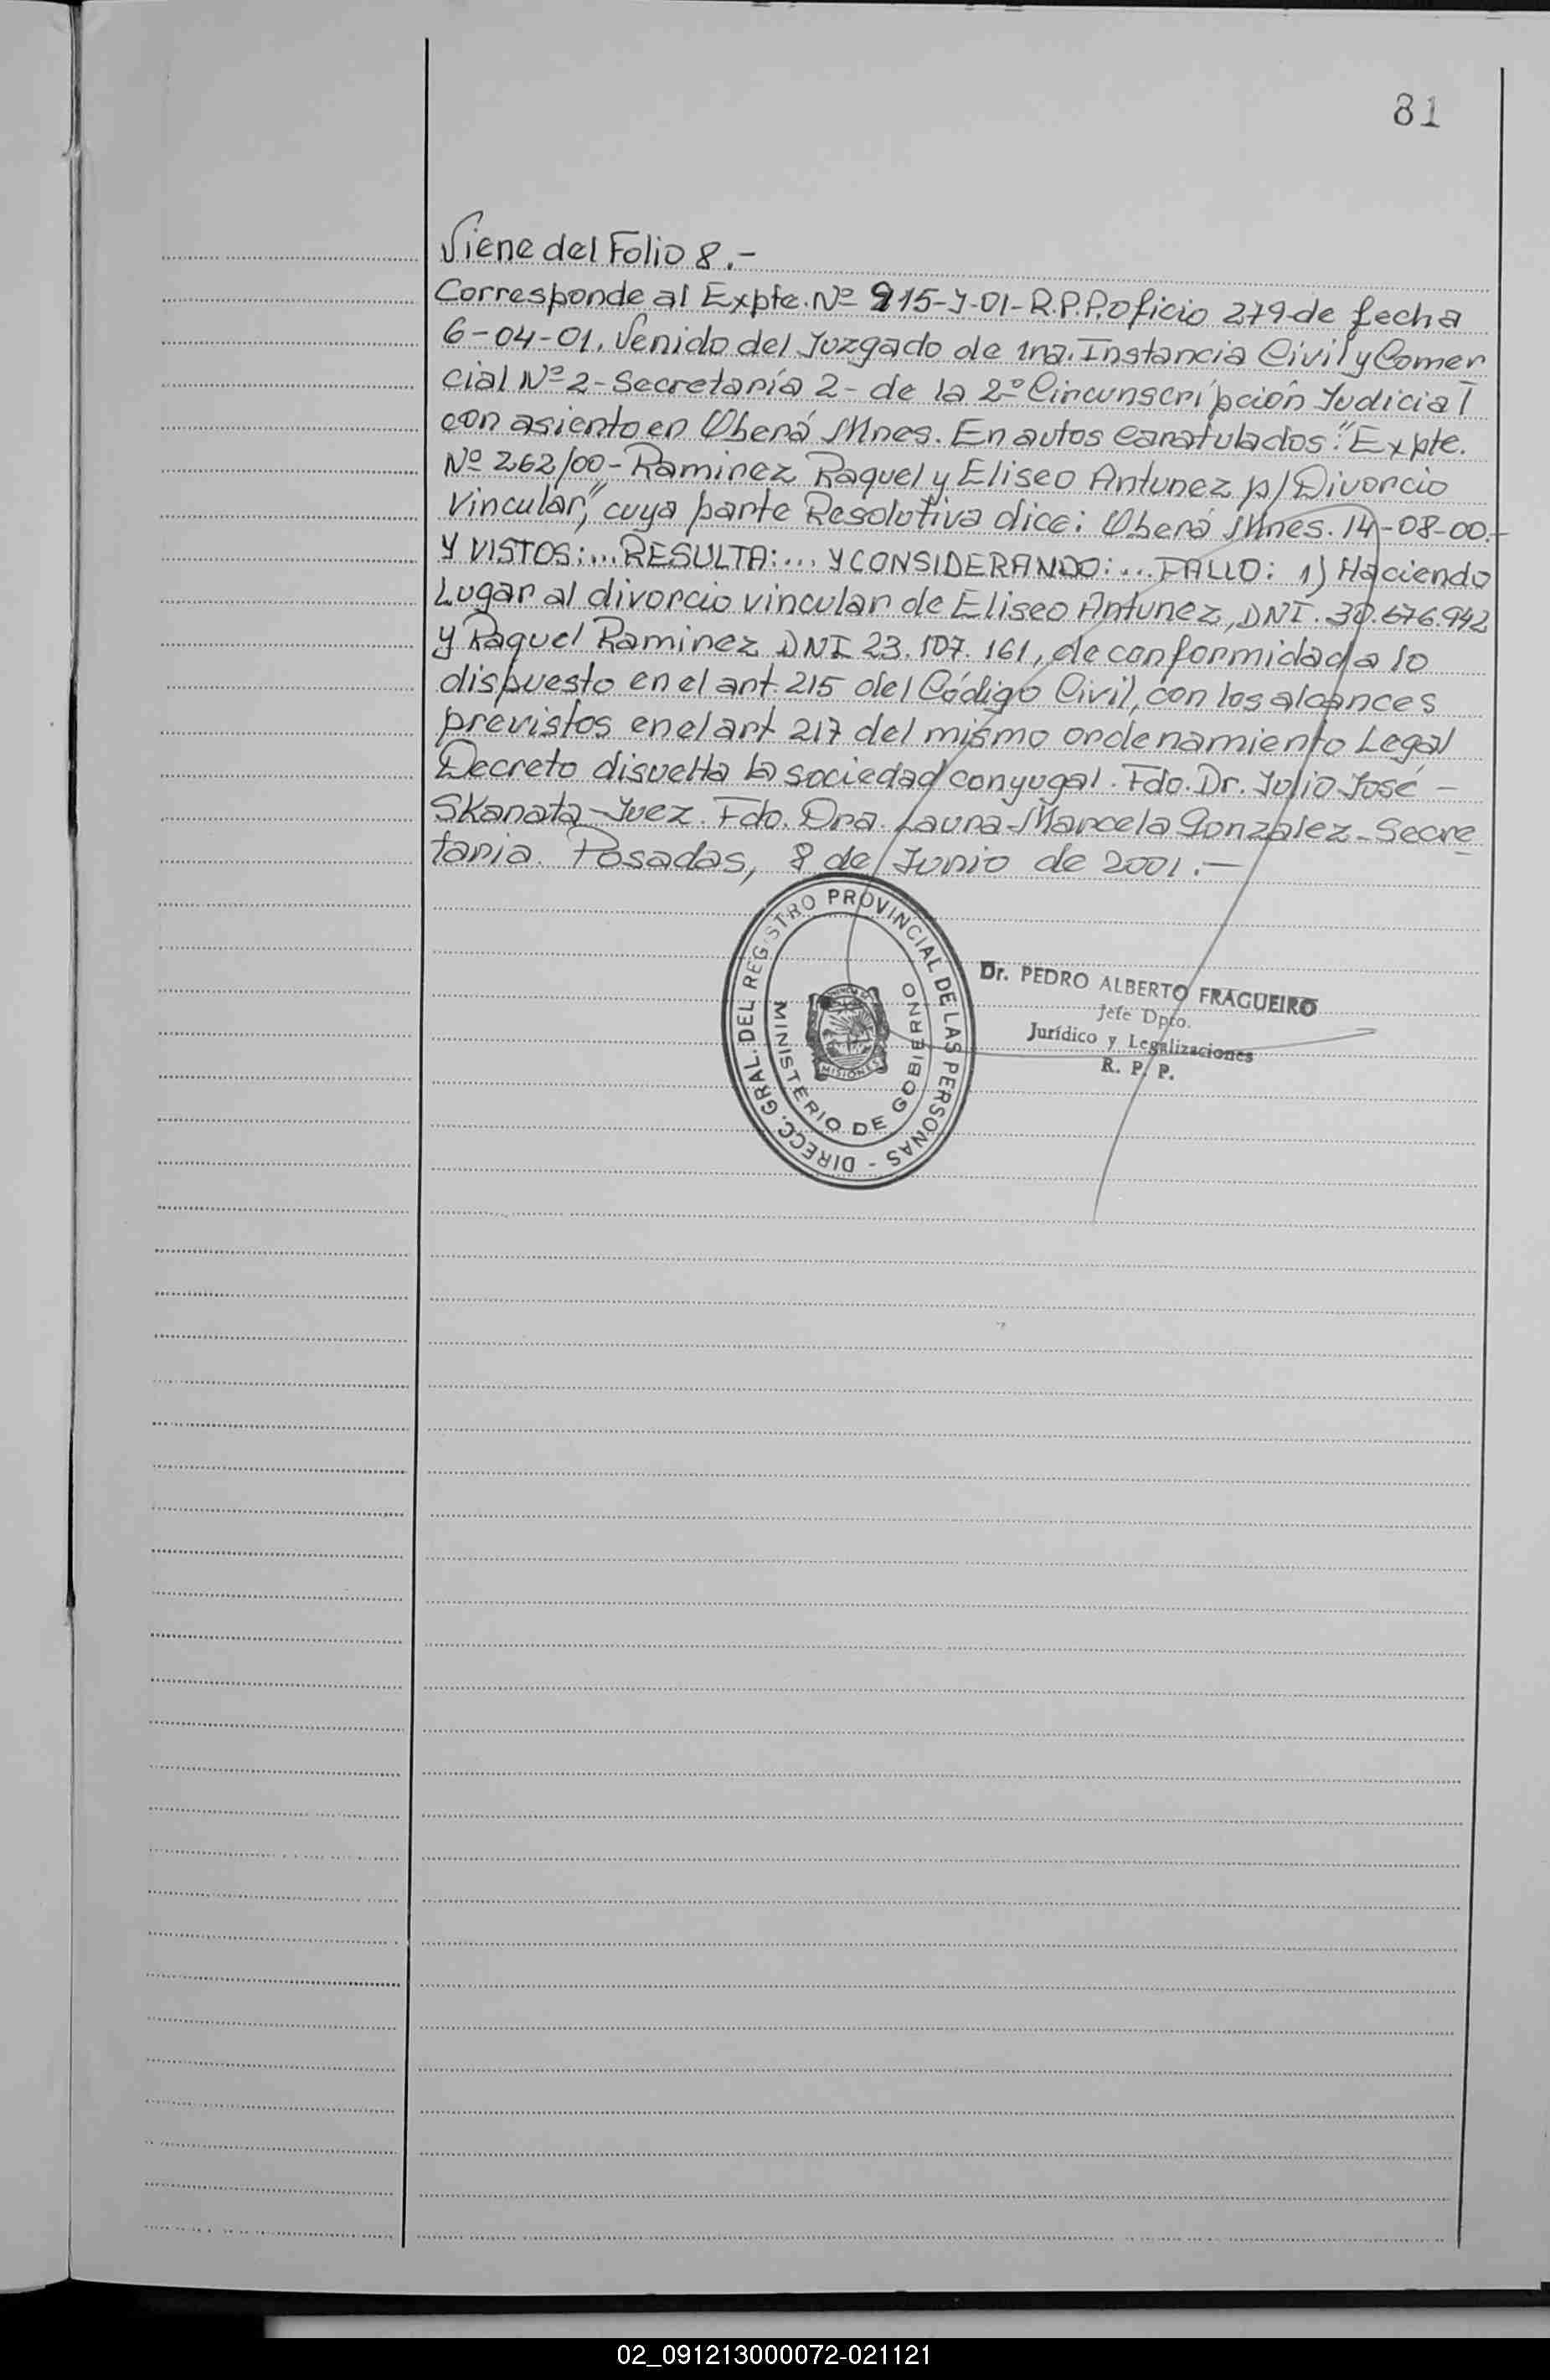 81
Viene del Folio 8.-
Corresponde al Expte. Nº 915-J-01-R.P.P. oficio 279 de fecha
6-04-01. Venido del Juzgado de 1ra. Instancia Civil y Comer
cial Nº 2 - Secretaría 2 - de la 2º Circunscripción Judicial
con asiento en Oberá Mnes. En autos Caratulados: "Expte.
Nº 262/00 - Ramirez Raquel y Eliseo Antunez p/ Divorcio
Vincular", cuya parte Resolutiva dice: Oberá Mnes. 14-08-00.-
Y VISTOS:... RESULTA:... Y CONSIDERANDO:... FALLO: 1) Haciendo
Lugar al divorcio vincular de Eliseo Antunez, DNI. 30.676.942
y Raquel Ramirez DNI 23.107.161, de conformidad a lo
dispuesto en el art. 215 del Código Civil, con los alcances
previstos en el art 217 del mismo ordenamiento Legal
Decreto disuelta la sociedad conyugal. Fdo. Dr. Julio José -
Skanata - Juez. Fdo. Dra. Laura Marcela Gonzalez - Secre
taria. Posadas, 8 de Junio de 2001.-
DIRECC. GRAL. DEL REGISTRO PROVINCIAL DE LAS PERSONAS -
MINISTERIO DE GOBIERNO
MISIONES
Dr. PEDRO ALBERTO FRAGUEIRO
Jefe Dpto.
Jurídico y Legalizaciones
R. P. P.
02_091213000072-021121